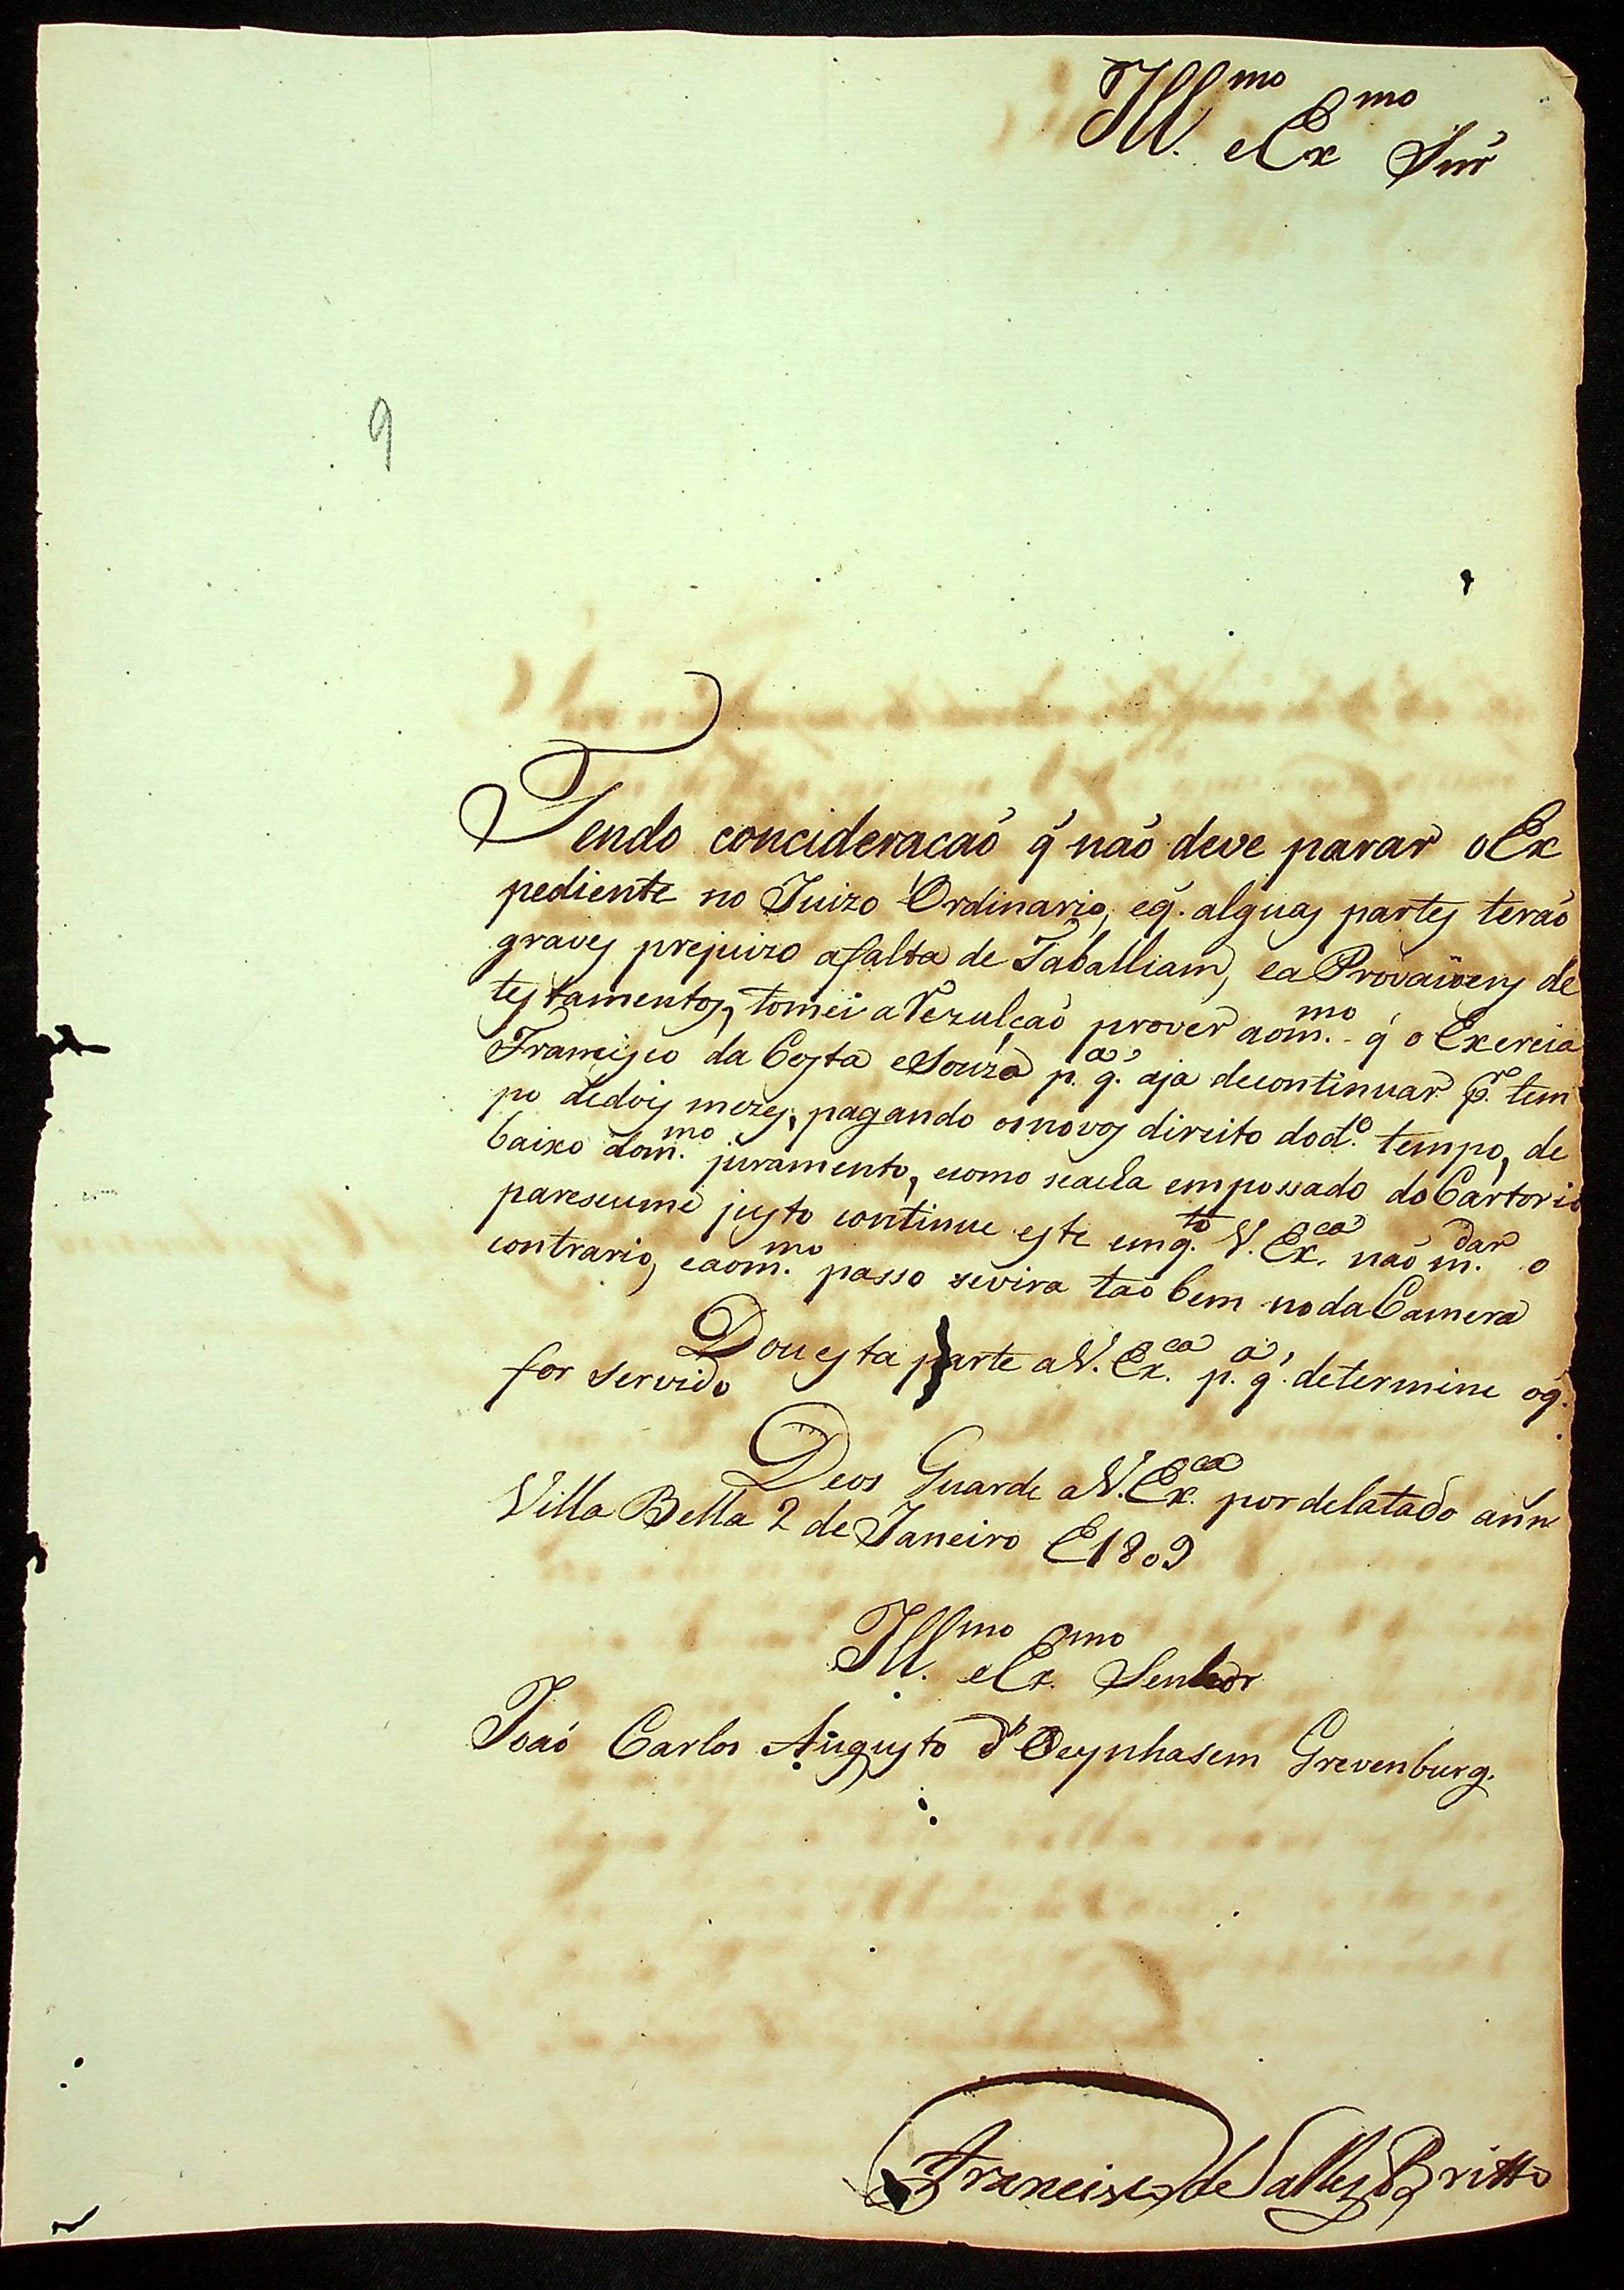 Ill.mo e Ex.mo Snr̃
9
Tendo concideracaõ q̃ naõ deve parar o Ex
pediente no Juizo Ordinario, eq̃. alguas partes teraõ
graves prejuizo afalta de Taballiam, ea Provaioens de
testamentos, tomei a Rezulçaõ prover aom.mo q̃ o Exercia
Francisco da Costa e Souza p.a q̃. aja decontinuar p.r tem
po dedois mezes, pagando osnovos direito dod.o tempo, de
baixo dom.mo juramento, ecomo seacla empossado do Cartorio
paresceume justo continue este emq.to V. Ex.ca naõ m.dar o
contrario, eaom.mo passo sevira taõ bem noda Camera
Dou esta parte aV. Ex.ca p.a q̃. determine oq̃.
for servido
Deos Guarde aV. Ex.ca pordelatado ann
Villa Bella 2 de Janeiro E1809
Ill.mo e Ex.mo Senhor
Joaõ Carlos Augusto d'Oeynhasem Grevenburg.
Francisco de Salles Britto